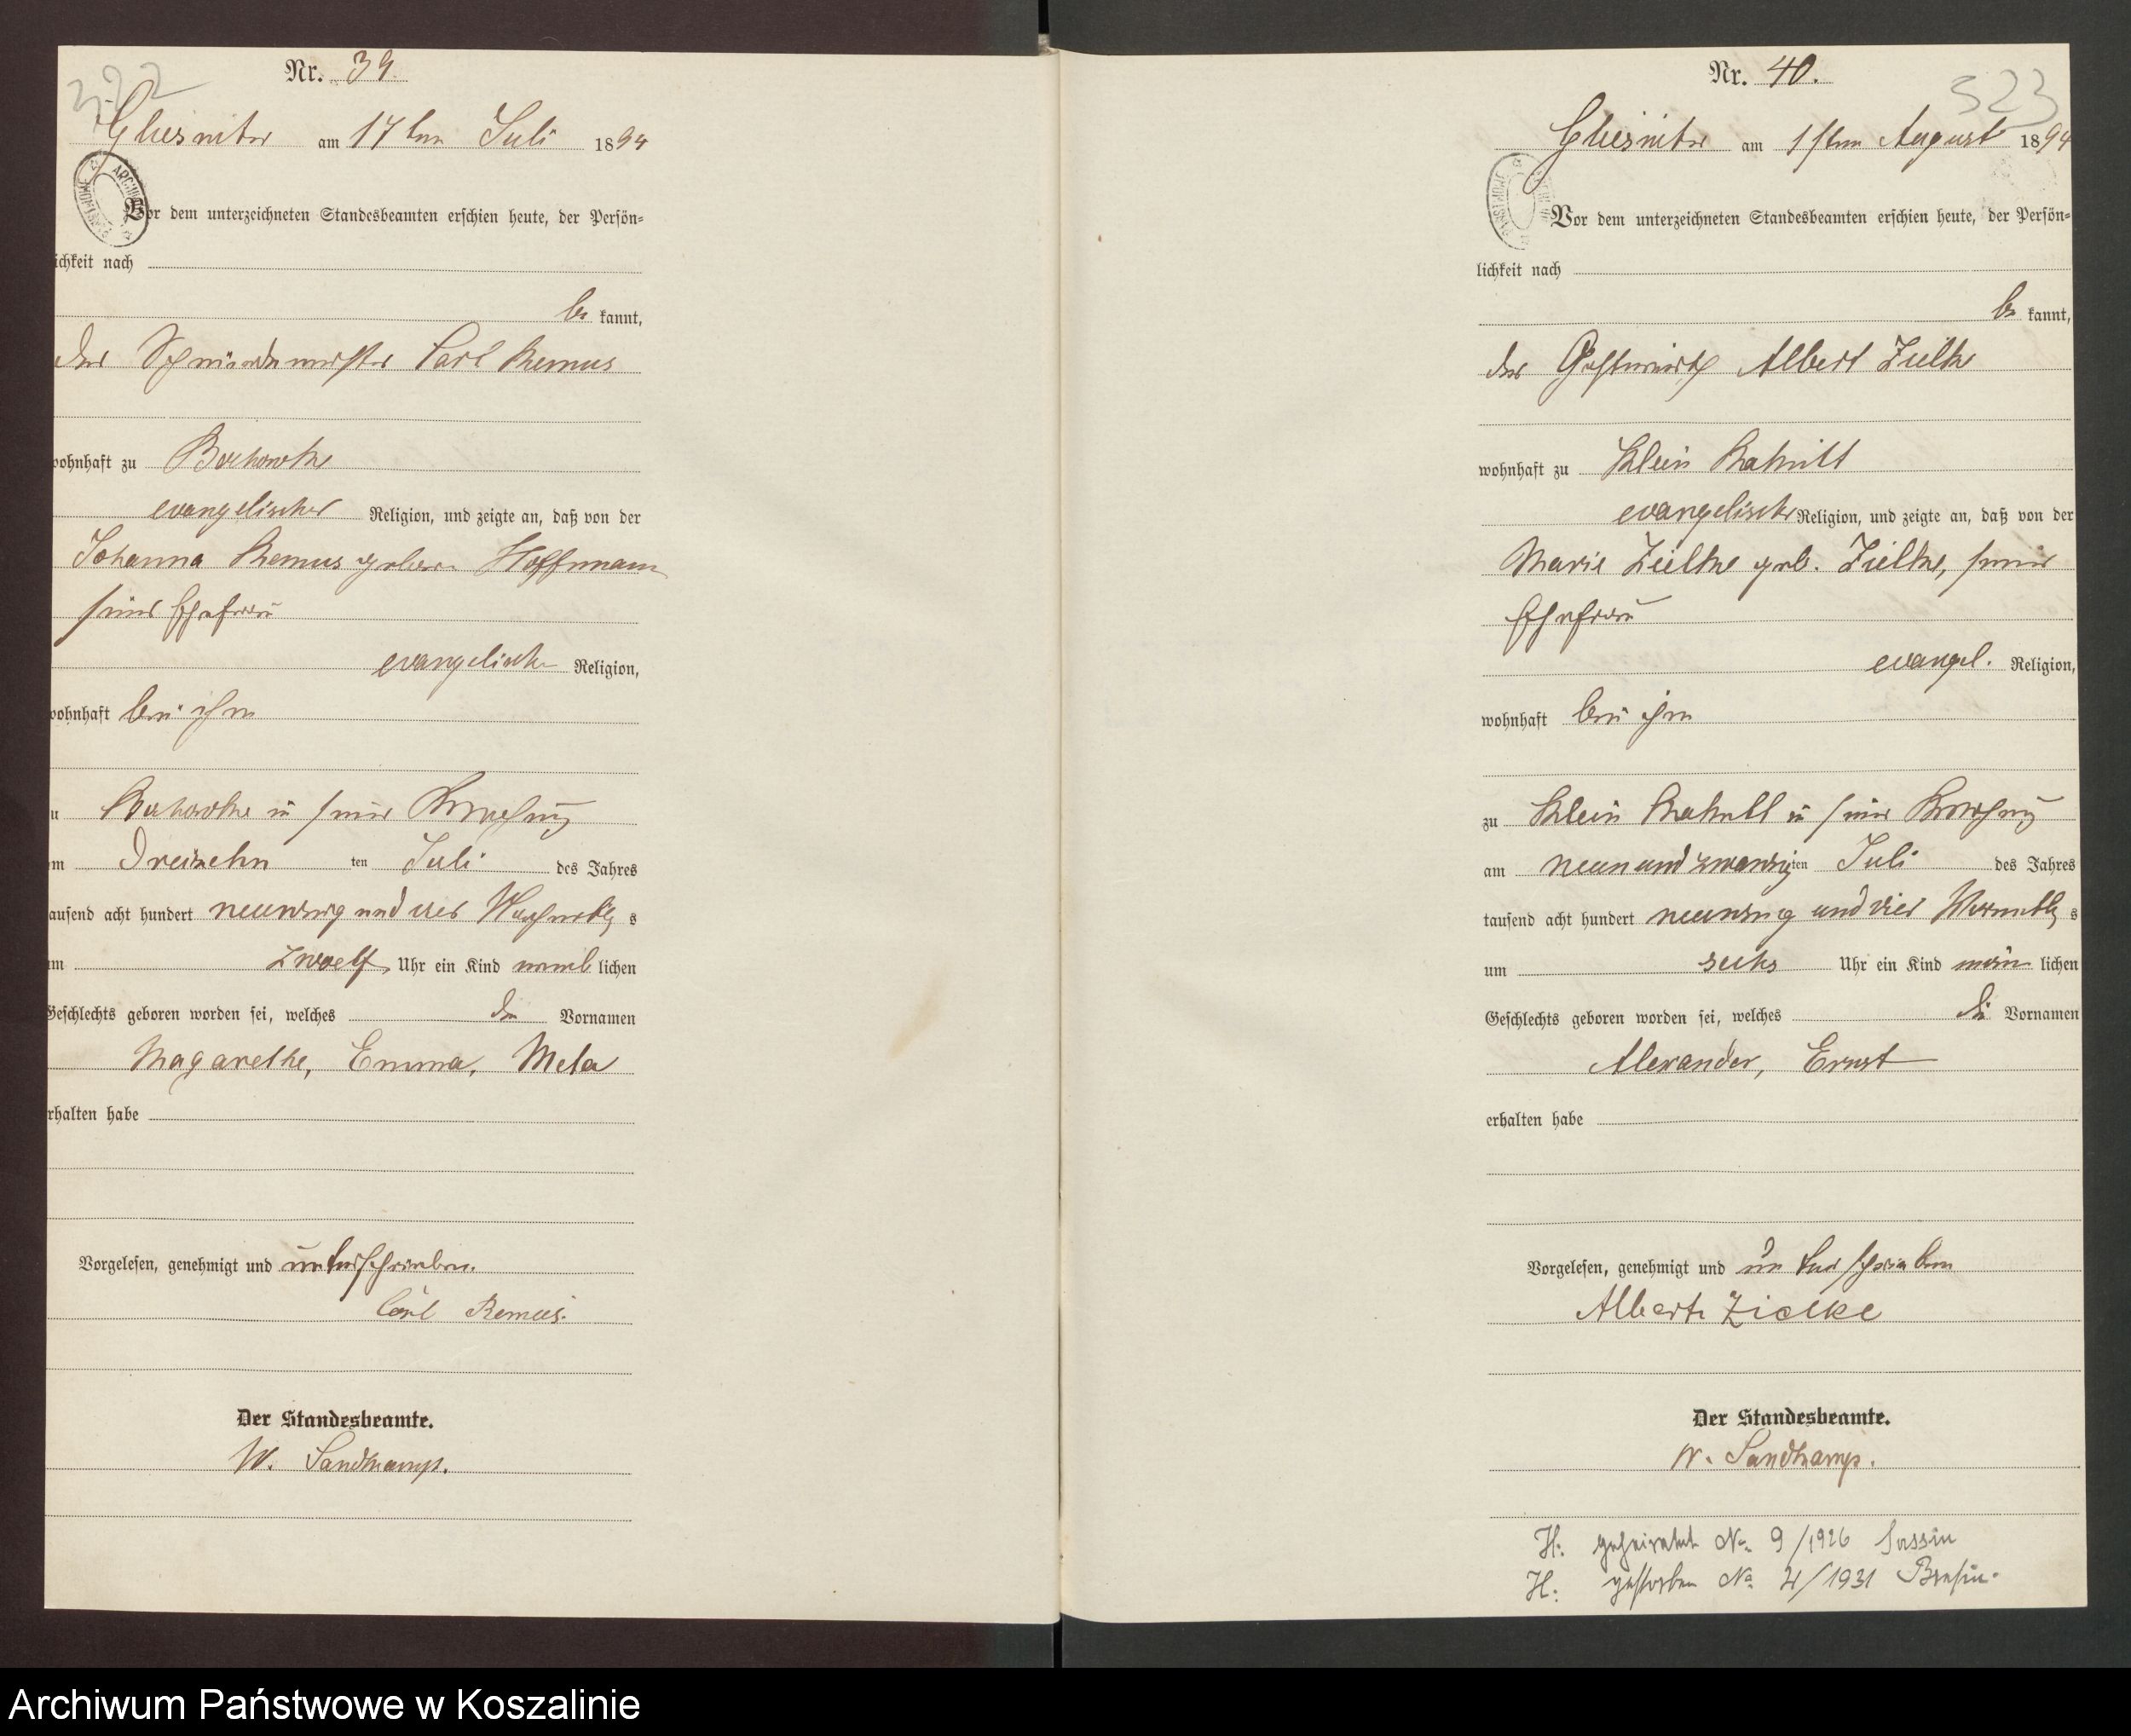 322
Nr. 39.
Gliesnitz am 17ten Juli 1894
Vor dem unterzeichneten Standesbeamten erschien heute, der Persön=
ichkeit nach
be kannt,
der Carl Remus
wohnhaft zu Bochowke
evangelischer Religion, und zeigte an, daß von der
Johanna Remus geborene Hoffmann
seiner Ehefrau
evangelischer Religion,
wohnhaft bei ihm
u Bochowke in seiner Behausung
m Dreizehn ten Juli des Jahres
ausend acht hundert neunzig und vier Nachmittag s
um zwoelf Uhr ein Kind weib lichen
Geschlechts geboren worden sei, welches die Vornamen
Magarethe, Emma, Meta
rhalten habe
Vorgelesen, genehmigt und unterschrieben.
Carl Remus.
Der Standesbeamte.
W. Sandkamp.
Nr. 40.
323
Gliesnitz am 1sten August 1894
Vor dem unterzeichneten Standesbeamten erschien heute, der Persön=
lichkeit nach
be kannt,
der Gastwirth Albert Zielke
wohnhaft zu Klein Rakitt
evangelischer Religion, und zeigte an, daß von der
Marie Zielke geb. Zielke, seiner
Ehefrau
evangel. Religion,
wohnhaft bei ihm
zu Klein Rakitt in seiner Behausung
am neunundzwanzig ten Juli des Jahres
tausend acht hundert neunzig und vier Vormittag s
um sechs Uhr ein Kind män lichen
Geschlechts geboren worden sei, welches die Vornamen
Alexander, Ernst
erhalten habe
Vorgelesen, genehmigt und unterschrieben
Albert Zielke
Der Standesbeamte.
W. Sandkamp.
H: geheiratet No. 9/1926 Sassin
H: gestorben No. 4/1931 Bresin.
Archiwum Państwowe w Koszalinie